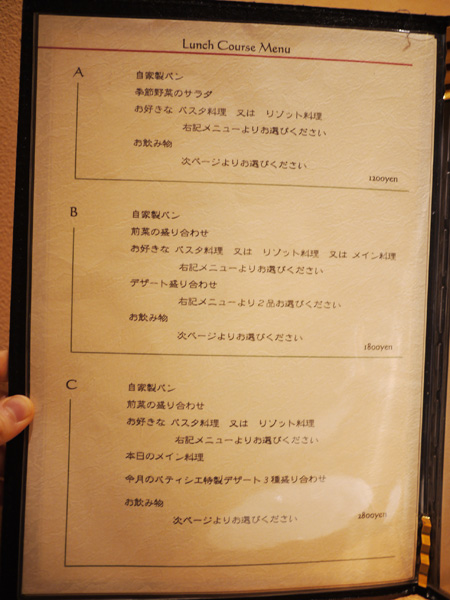 Lunch Course Menu
A
自家製パン
季節野菜のサラダ
お好きな パスタ料理 又は リゾット料理
右記メニューよりお選びください
お飲み物
次ページよりお選びください
1200yen
B
自家製パン
前菜の盛り合わせ
お好きな パスタ料理 又は リゾット料理 又は メイン料理
右記メニューよりお選びください
デザート盛り合わせ
右記メニューより2品お選びください
お飲み物
次ページよりお選びください
1800yen
C
自家製パン
前菜の盛り合わせ
お好きな パスタ料理 又は リゾット料理
右記メニューよりお選びください
本日のメイン料理
今月のパティシエ特製デザート3種盛り合わせ
お飲み物
次ページよりお選びください
2800yen